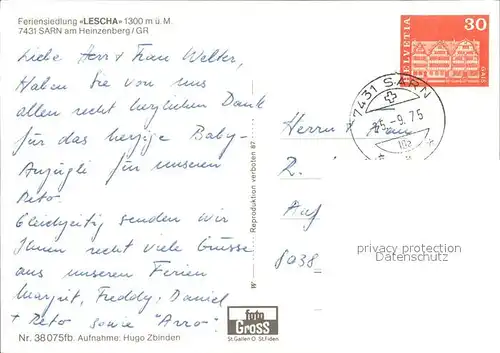 Feriensiedlung «LESCHA» 1300 m ü.M.
7431 SARN am Heinzenberg/GR
Liebe Herr + Frau Welter,
Haben Sie von uns
allen recht herzlichen Dank
für das herzige Baby-
Anzügli für unseren
Reto
Gleichzeitig senden wir
Ihnen recht viele Grüsse
aus unseren Ferien
Margrit, Freddy, Daniel
+ Reto sowie "Arro"!
Nr. 38 075fb. Aufnahme: Hugo Zbinden
W
Reproduktion verboten 87
foto
Gross
St.Gallen O. St.Fiden
HELVETIA
30
GAIS
7431 SARN
-9.75
Herrn + Frau
R.
Auf
8038
privacy protection
Datenschutz